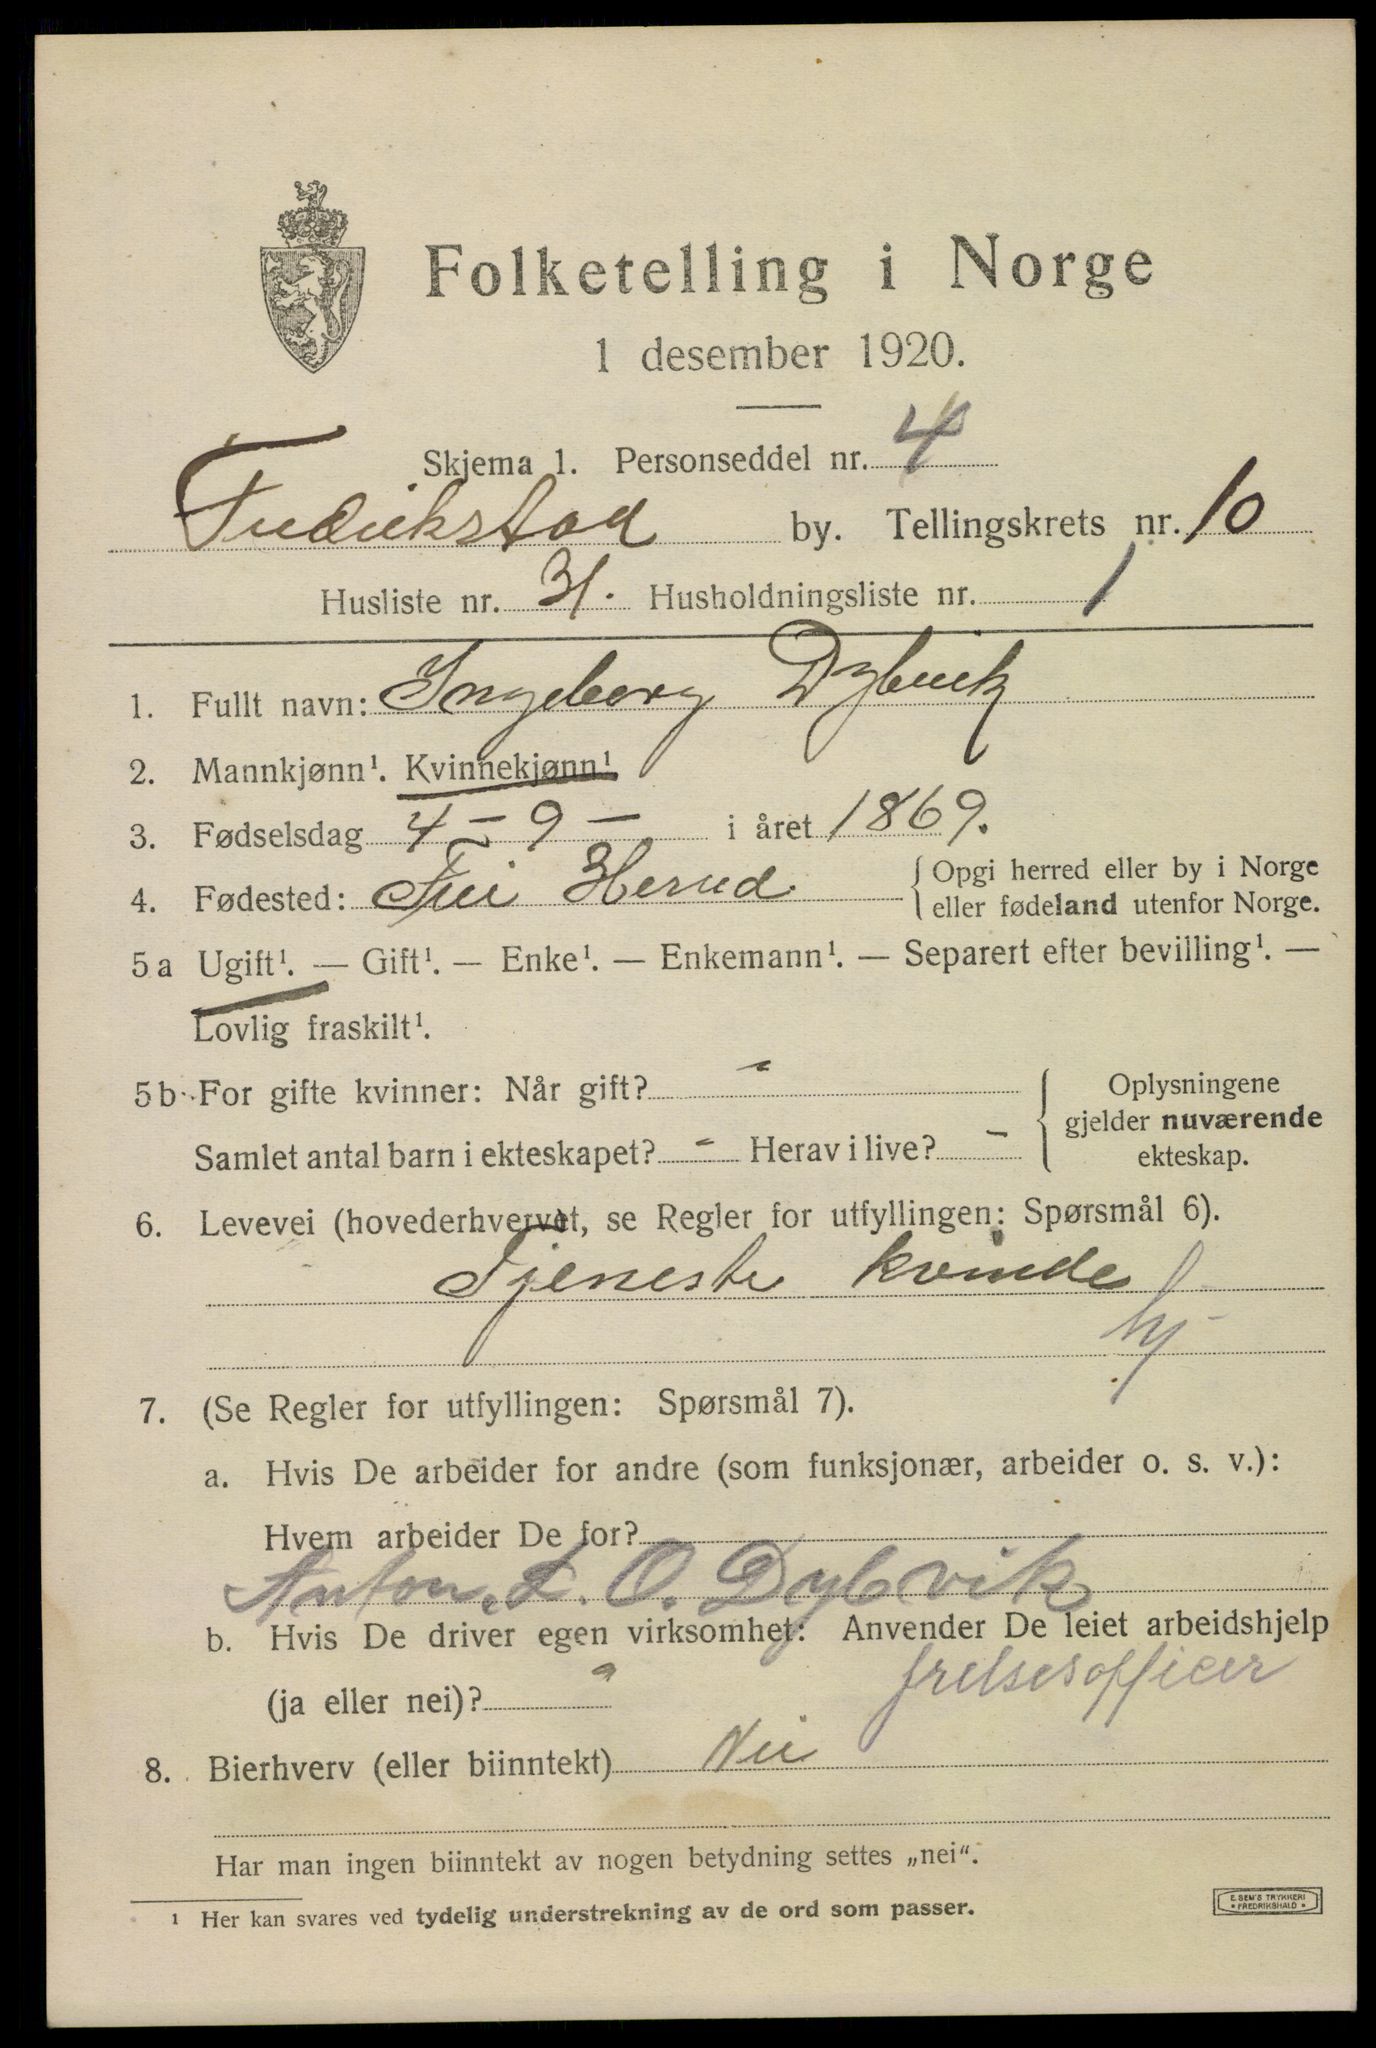 Folketelling i Norge
1 desember 1920.
Skjema 1. Personseddel nr. 4
Fredrikstad by. Tellingskrets nr. 10
Husliste nr. 31. Husholdningsliste nr. 1
1. Fullt navn: Ingeborg Dybvik
2. Mannkjønn¹. Kvinnekjønn¹
3. Fødselsdag 4 - 9 - i året 1869.
4. Fødested: Herred { Opgi herred eller by i Norge
eller fødeland utenfor Norge.
5a Ugift¹. — Gift¹. — Enke¹. — Enkemann¹. — Separert efter bevilling¹. —
Lovlig fraskilt¹.
5b For gifte kvinner: Når gift? - { Oplysningene
gjelder nuværende
Samlet antal barn i ekteskapet? - Herav i live? -
ekteskap.
6. Levevei (hovederhvervet, se Regler for utfyllingen: Spørsmål 6).
Tjeneste kvinde
hj
7. (Se Regler for utfyllingen: Spørsmål 7).
a. Hvis De arbeider for andre (som funksjonær, arbeider o. s. v.):
Hvem arbeider De for?
Anton. L. O. Dybvik
b. Hvis De driver egen virksomhet: Anvender De leiet arbeidshjelp
frelsesofficer
(ja eller nei)?
8. Bierhverv (eller biinntekt) Nei
Har man ingen biinntekt av nogen betydning settes „nei“.
¹ Her kan svares ved tydelig understrekning av de ord som passer.
E. SEM'S TRYKKERI
FREDRIKSHALD